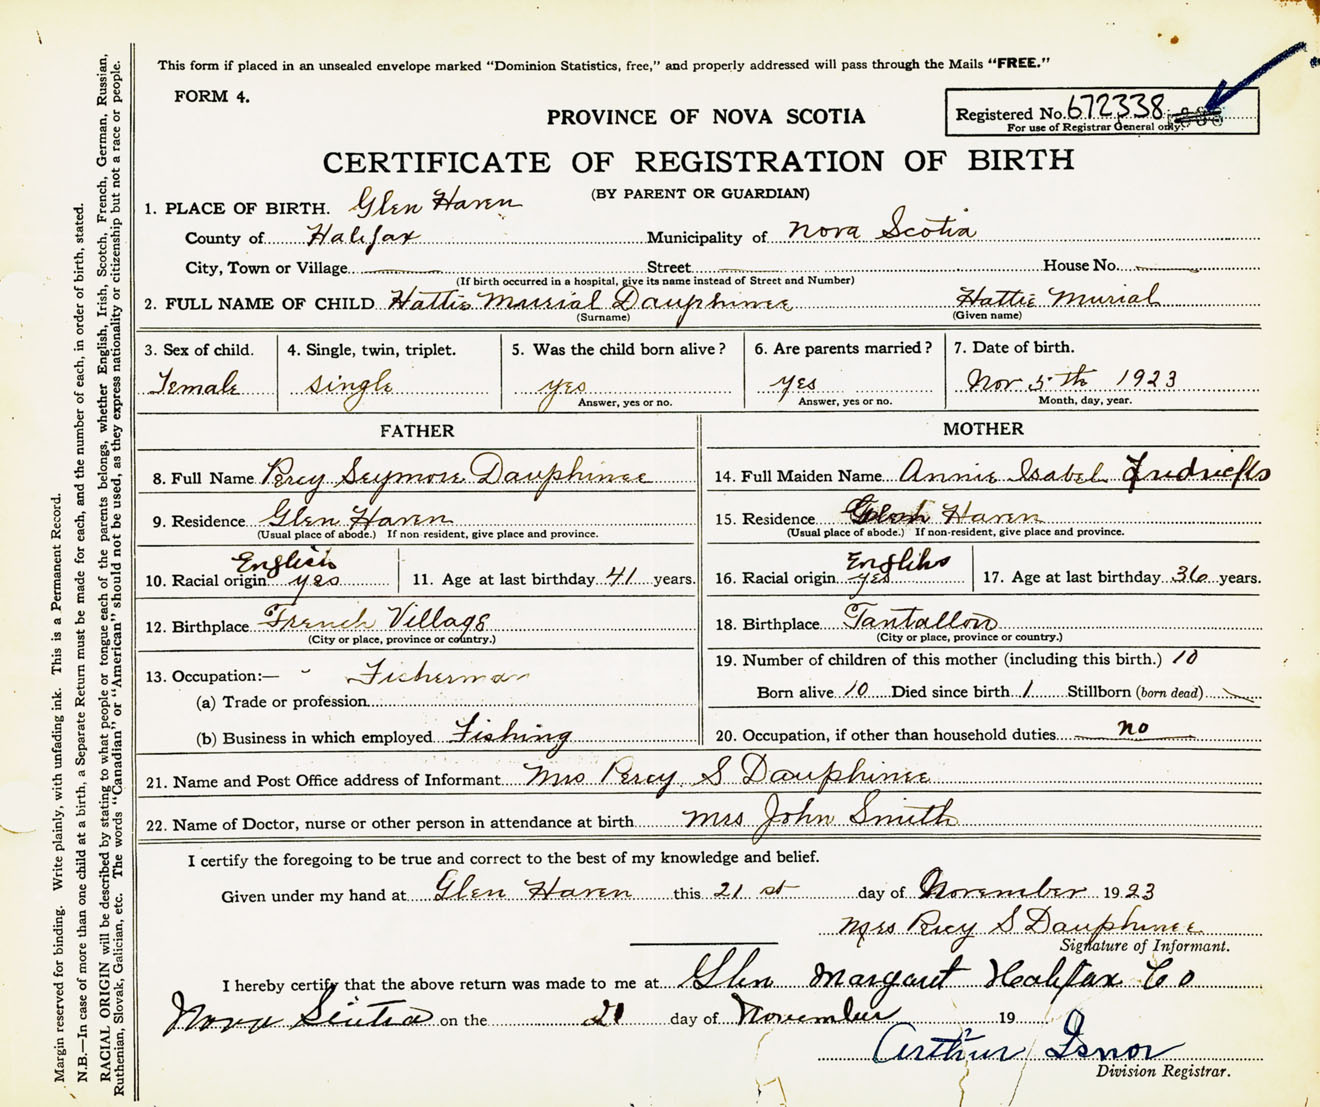 This form if placed in an unsealed envelope marked "Dominion Statistics, free," and properly addressed will pass through the Mails "FREE."
FORM 4.
PROVINCE OF NOVA SCOTIA
Registered No. 672338
For use of Registrar General only.
CERTIFICATE OF REGISTRATION OF BIRTH
(BY PARENT OR GUARDIAN)
1. PLACE OF BIRTH. Glen Haven
County of Halifax Municipality of Nova Scotia
City, Town or Village Street House No.
(If birth occurred in a hospital, give its name instead of Street and Number)
2. FULL NAME OF CHILD Hattie Murial Dauphinee Hattie Murial
(Surname) (Given name)
3. Sex of child. 4. Single, twin, triplet. 5. Was the child born alive? 6. Are parents married? 7. Date of birth.
Female single yes yes Nov 5th 1923
Answer, yes or no. Answer, yes or no. Month, day, year.
FATHER
8. Full Name Percy Seymore Dauphinee
9. Residence Glen Haven
(Usual place of abode.) If non-resident, give place and province.
English
10. Racial origin yes 11. Age at last birthday 41 years.
12. Birthplace French Village
(City or place, province or country.)
13. Occupation:— Fisherman
(a) Trade or profession
(b) Business in which employed Fishing
MOTHER
14. Full Maiden Name Annie Isabel
15. Residence Haven
(Usual place of abode.) If non-resident, give place and province.
16. Racial origin yes 17. Age at last birthday 36 years.
18. Birthplace Tantallon
(City or place, province or country.)
19. Number of children of this mother (including this birth.) 10
Born alive 10 Died since birth 1 Stillborn (born dead)
20. Occupation, if other than household duties no
21. Name and Post Office address of Informant Mrs Percy S Dauphinee
22. Name of Doctor, nurse or other person in attendance at birth Mrs John Smith
I certify the foregoing to be true and correct to the best of my knowledge and belief.
Given under my hand at Glen Haven this 21st day of November 1923
Mrs Percy S Dauphinee
Signature of Informant.
I hereby certify that the above return was made to me at Glen Margaret Halifax Co
Nova Scotia on the 21 day of November 19
Arthur Isnor
Division Registrar.
Margin reserved for binding. Write plainly, with unfading ink. This is a Permanent Record.
N.B.—In case of more than one child at a birth, a Separate Return must be made for each, and the number of each, in order of birth, stated.
RACIAL ORIGIN will be described by stating to what people or tongue each of the parents belongs, whether English, Irish, Scotch, French, German, Russian,
Ruthenian, Slovak, Galician, etc. The words "Canadian" or "American" should not be used, as they express nationality or citizenship but not a race or people.